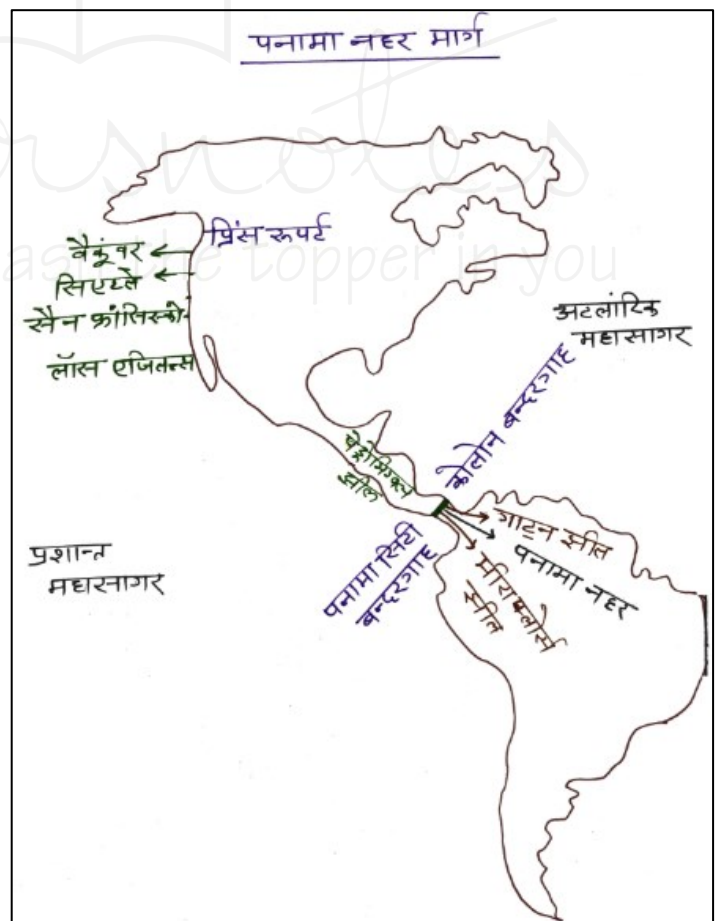 पनामा नहर मार्ग
प्रिंस रूपर्ट
वैकूंवर
सिएटले
सैन फ्रांसिस्को
लॉस एंजिलन्स
अटलांटिक
महासागर
कोलोन बन्दरगाह
पैड्रोमिग्वल
झील
गाटून झील
पनामा नहर
मीराफ्लोर्स
झील
पनामा सिटी
बन्दरगाह
प्रशान्त
महासागर